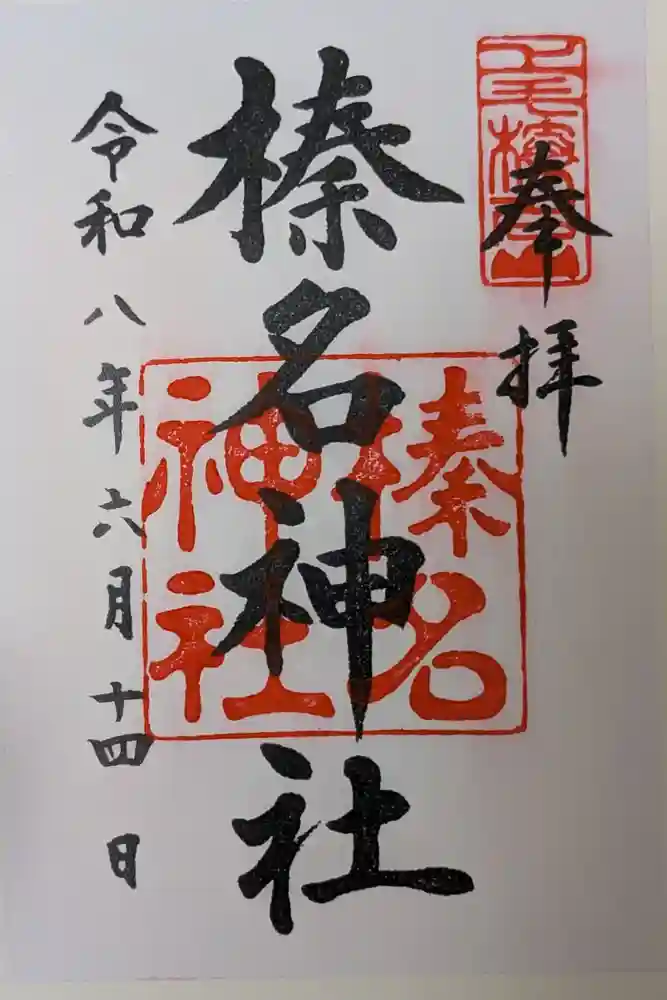 奉拝
榛名神社
榛名
神社
令和八年六月十四日